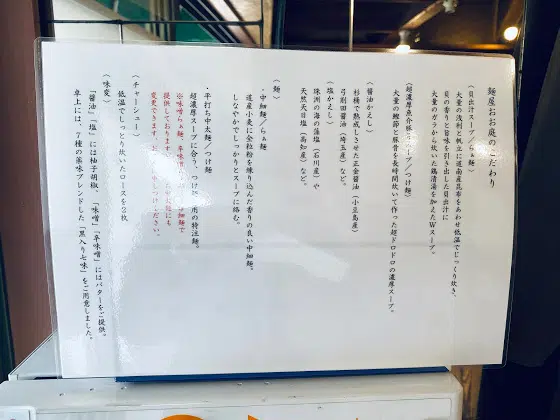 麺屋お庭のこだわり
(貝出汁スープ/らぁ麺)
大量の浅利と帆立に道南産昆布をあわせ低温でじっくり炊き、
貝の香りと旨味を引き出した貝出汁に
大量のガラから炊いた鶏清湯を加えたWスープ。
(超濃厚魚介豚骨スープ/つけ麺)
大量の鰹節と豚骨を長時間炊いて作った超ドロドロの濃厚スープ。
(醤油かえし)
弓削田醤油(埼玉産)など。
杉桶で熟成しさせた正金醤油(小豆島産)
(塩かえし)
珠洲の海の藻塩(石川産)や
天然天日塩(高知産)など。
(麺)
・中細麺/らぁ麺
道産小麦に全粒粉を練り込んだ香りの良い中細麺。
しなやかでしっかりとスープに絡む。
・平打ち中太麺/つけ麺
超濃厚スープに合う、つけ麺専用の特注麺。
※味噌らぁ麺、辛味噌
提供しております。
変更できます。
(チャーシュー)
低温でしっとり炊いたロースを2枚
(味変)
「醤油」「塩」には柚子胡椒、「味噌」「辛味噌」にはバターをご提供。
卓上には、7種の薬味ブレンドした「黒入り七味」をご用意しました。